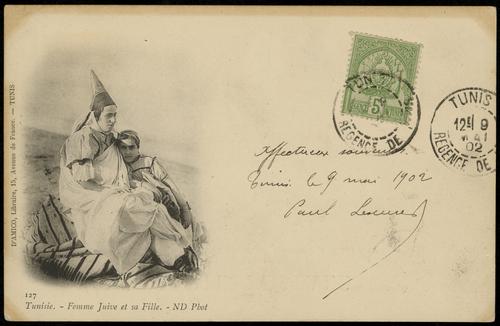 D'AMICO, Libraire, 15, Avenue de France. - TUNIS
TUNIS
5
RÉGENCE DE
TUNIS
12 9
MAI
02
RÉGENCE DE
Affectueux souvenir
Tunis le 9 mai 1902
Paul
127
Tunisie. - Femme Juive et sa Fille. - ND Phot